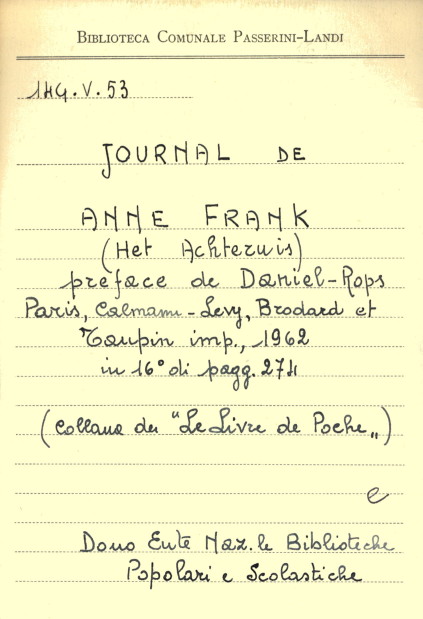 BIBLIOTECA COMUNALE PASSERINI-LANDI
1HG.V.53
JOURNAL DE
ANNE FRANK
(Het Achteruis)
préface de Daniel-Rops
Paris, Calmann-Levy, Brodard et
Taupin imp., 1962
in 16° di pagg. 274
(Collana de "Le Livre de Poche")
e
Dono Ente Naz.le Biblioteche
Popolari e Scolastiche